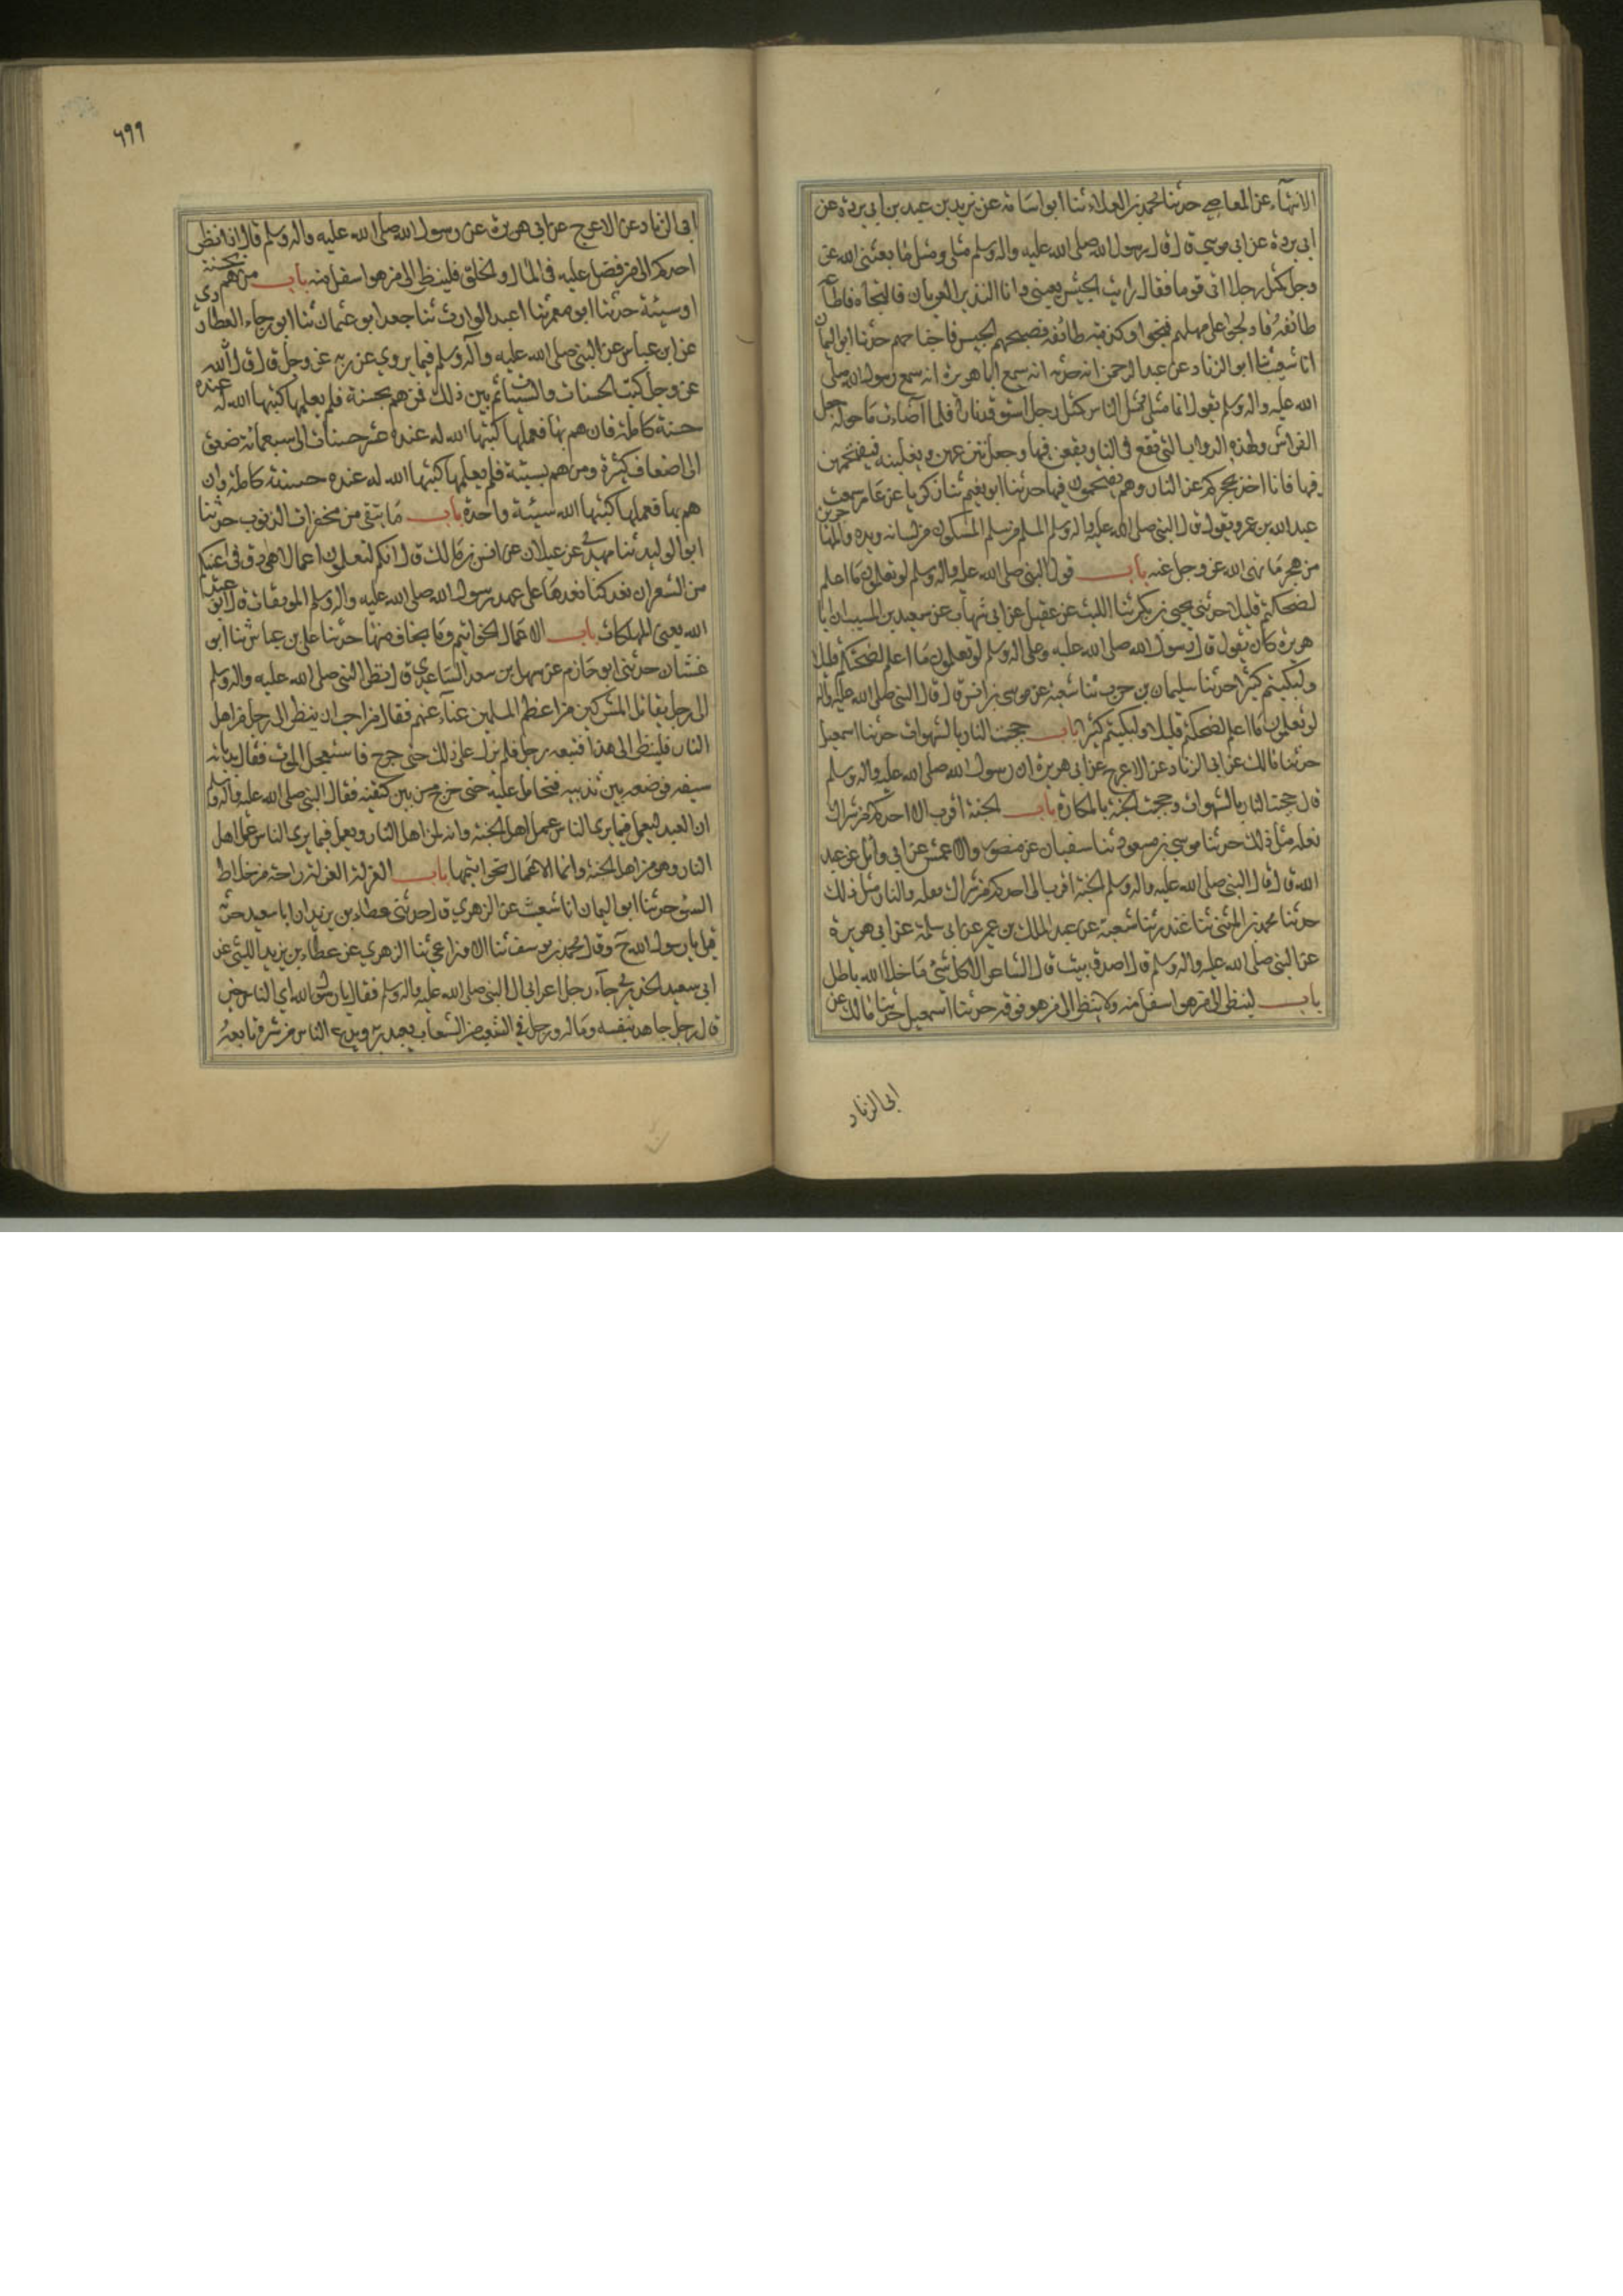 الانتهاء عن المعاصي حدثنا محمد بن العلاء ثنا ابو اسامة عن بريد بن عبد بن ابي بردة عن
ابي بردة عن ابي موسي قال قال رسول الله صلى الله عليه واله وسلم مثلي ومثل ما بعثني الله عز
وجل كمثل رجل اتى قوما فقال رايت الجيش بعيني وانا النذير العريان فالنجاه فاطاعه
طائفة فادلجوا على مهلهم فنجوا وكذبته طائفة فصبحهم الجيش فاجتاحهم حدثنا ابو اليمان
انا شعيب ثنا ابو الزناد عن عبد الرحمن انه حدثه انه سمع ابا هريرة انه سمع رسول الله صلى
الله عليه واله وسلم يقول انما مثلي ومثل الناس كمثل رجل استوقد نارا فلما اضاءت ما حوله جعل
الفراش وهذه الدواب التي تقع في النار يقعن فيها وجعل ينزعهن ويغلبنه فيقتحمن
فيها فانا اخذ بحجزكم عن النار وهم يقتحمون فيها حدثنا ابو نعيم ثنا زكريا عن عامر سمعت
عبد الله بن عمرو يقول قال النبي صلى الله عليه واله وسلم المسلم من سلم المسلمون من لسانه ويده والمهاجر من
من هجر ما نهى الله عز وجل عنه باب قول النبي صلى الله عليه واله وسلم لو تعلمون ما اعلم
لضحكتم قليلا حدثني يحيى بن بكير ثنا الليث عن عقيل عن ابن شهاب عن سعيد بن المسيب ان ابا
هريرة كان يقول قال رسول الله صلى الله عليه وعلى اله وسلم لو تعلمون ما اعلم لضحكتم قليلا
ولبكيتم كثيرا حدثنا سليمان بن حرب ثنا شعبة عن موسى بن انس قال قال النبي صلى الله عليه واله
لو تعلمون ما اعلم لضحكتم قليلا ولبكيتم كثيرا باب حجبت النار بالشهوات حدثنا اسمعيل
حدثنا مالك عن ابي الزناد عن الاعرج عن ابي هريرة ان رسول الله صلى الله عليه واله وسلم
قال حجبت النار بالشهوات وحجبت الجنة بالمكارة باب الجنة اقرب الى احدكم من شراك
نعله مثل ذلك حدثنا موسي بن مسعود ثنا سفيان عن منصور والاعمش عن ابي وائل عن عبد
الله قال قال النبي صلى الله عليه واله وسلم الجنة اقرب الى احدكم من شراك نعله والنار مثل ذلك
حدثنا محمد بن المثنى ثنا غندر ثنا شعبة عن عبد الملك بن عمير عن ابي سلمة عن ابي هريرة
عن النبي صلى الله عليه واله وسلم قال اصدق بيت قال الشاعر الا كل شئ ما خلا الله باطل
باب لينظر الى من هو اسفل منه ولا ينظر الى من هو فوقه حدثنا اسمعيل حدثنا مالك عن
ابي الزناد
٦٩٩
ابي الزناد عن الاعرج عن ابي هريرة عن رسول الله صلى الله عليه واله وسلم قال اذا نظر
احدكم الى من فضل عليه في المال والخلق فلينظر الى من هو اسفل منه باب من هم بحسنة
او سيئة حدثنا ابو معمر ثنا عبد الوارث ثنا جعد ابو عثمان ثنا ابو رجاء العطاردي
عن ابن عباس عن النبي صلى الله عليه واله وسلم فيما يروي عن ربه عز وجل قال قال الله
عز وجل كتب الحسنات والسيئات ثم بين ذلك فمن هم بحسنة فلم يعملها كتبها الله له عنده
حسنة كاملة فان هم بها فعملها كتبها الله له عنده عشر حسنات الى سبعمائة ضعف
الى اضعاف كثيرة ومن هم بسيئة فلم يعملها كتبها الله له عنده حسنة كاملة وان
هم بها فعملها كتبها الله سيئة واحدة باب ما يتقى من محقرات الذنوب حدثنا
ابو الوليد ثنا مهدي عن غيلان عن انس بن مالك قال انكم لتعملون اعمالا هي ادق في اعينكم
من الشعر ان نعد كنا نعدها على عهد رسول الله صلى الله عليه واله وسلم الموبقات قال ابو عبد
الله يعني المهلكات باب الاعمال الخواتيم وما يخاف منها حدثنا علي بن عياش ثنا ابو
غسان حدثني ابو حازم عن سهل بن سعد الساعدي قال نظر النبي صلى الله عليه واله وسلم
الى رجل يقاتل المشركين من اعظم المسلمين غناء عنهم فقال من احب ان ينظر الى رجل من اهل
النار فلينظر الى هذا فتبعه رجل فلم يزل على ذلك حتى جرح فاستعجل الموت فقال بذبابة
سيفه فوضعه بين ثدييه فتحامل عليه حتى خرج من بين كتفيه فقال النبي صلى الله عليه واله وسلم
ان العبد ليعمل فيما يرى الناس عمل اهل الجنة وانه لمن اهل النار ويعمل فيما يرى الناس عمل اهل
النار وهو من اهل الجنة وانما الاعمال بخواتيمها باب العزلة العزلة راحة من خلاط
السوء حدثنا ابو اليمان انا شعيب عن الزهري قال حدثني عطاء بن يزيد ان ابا سعيد حدثه
قيل يا رسول الله ح وقال محمد بن يوسف ثنا الاوزاعي ثنا الزهري عن عطاء بن يزيد الليثي عن
ابي سعيد الخدري جاء رجل اعرابي الى النبي صلى الله عليه واله وسلم فقال يا رسول الله اي الناس خير
قال رجل جاهد بنفسه وماله ورجل في الشعب من الشعاب يعبد ربه ويدع الناس من شره تابعه